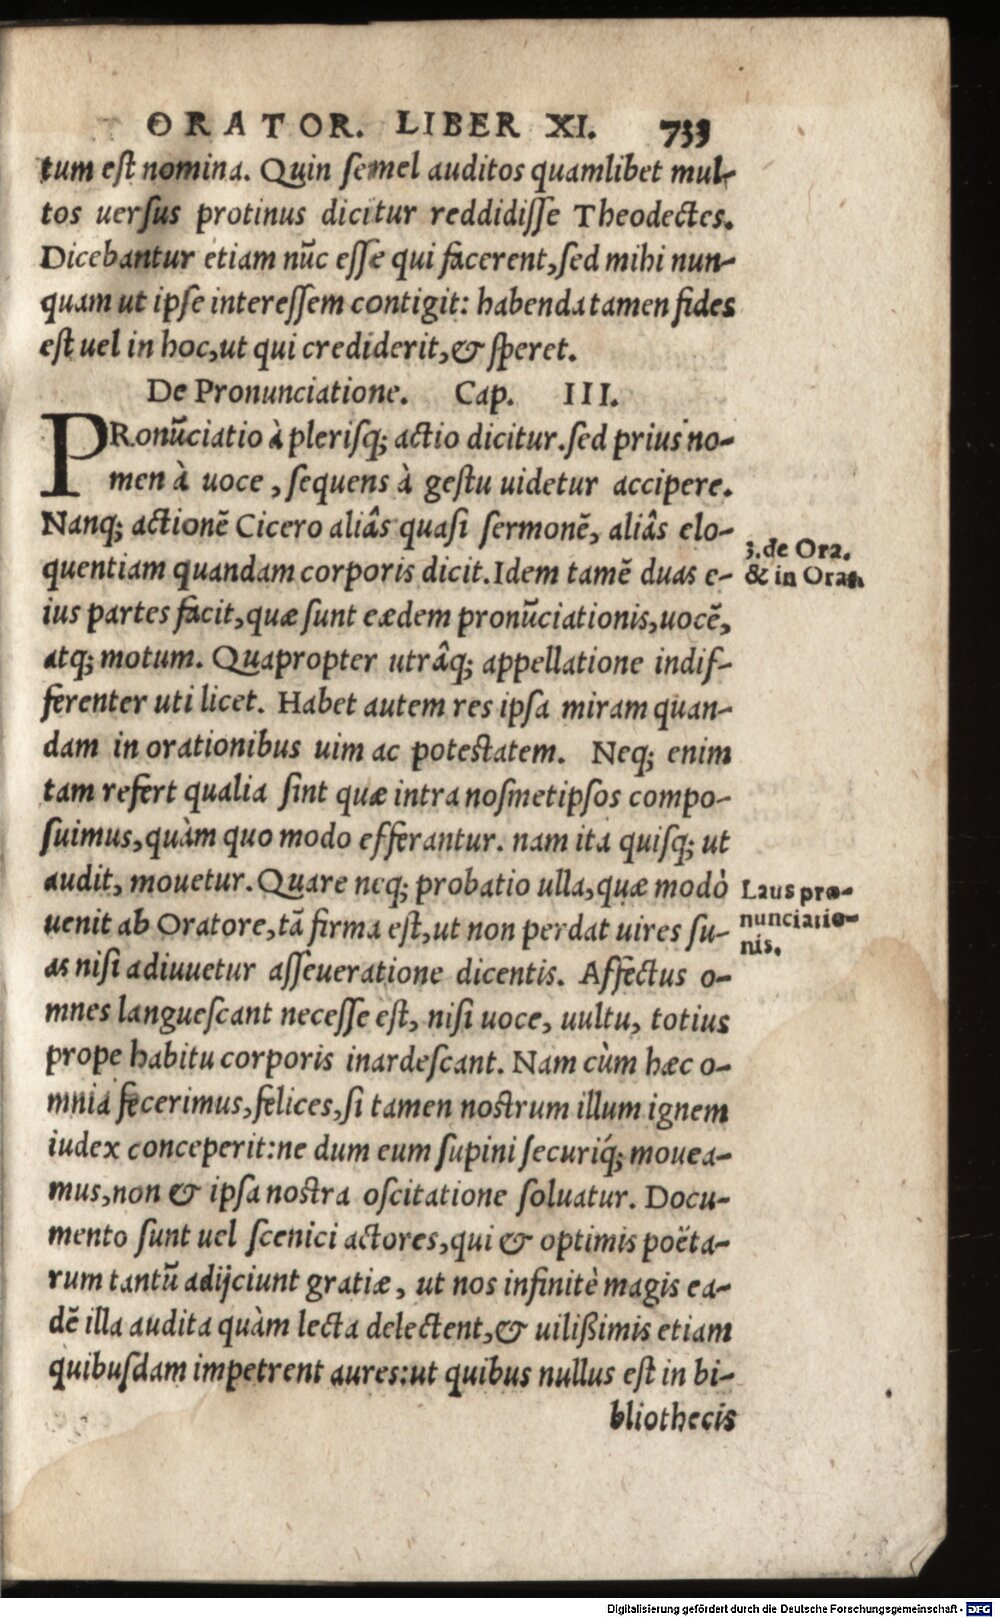 ORATOR. LIBER XI. 733
tum est nomina. Quin semel auditos quamlibet mul-
tos uersus protinus dicitur reddidisse Theodectes.
Dicebantur etiam nũc esse qui facerent, sed mihi nun-
quam ut ipse interessem contigit: habenda tamen fides
est uel in hoc, ut qui crediderit, & speret.
De Pronunciatione. Cap. III.
PRonũciatio à plerisq; actio dicitur. sed prius no-
men à uoce, sequens à gestu uidetur accipere.
Nanq; actionẽ Cicero aliâs quasi sermonẽ, aliâs elo-
quentiam quandam corporis dicit. Idem tamẽ duas e-
3. de Ora.
& in Orat.
ius partes facit, quæ sunt eædem pronũciationis, uocẽ,
atq; motum. Quapropter utrâq; appellatione indif-
ferenter uti licet. Habet autem res ipsa miram quan-
dam in orationibus uim ac potestatem. Neq; enim
tam refert qualia sint quæ intra nosmetipsos compo-
suimus, quàm quo modo efferantur. nam ita quisq; ut
audit, mouetur. Quare neq; probatio ulla, quæ modò
uenit ab Oratore, tã firma est, ut non perdat uires su-
Laus pro-
nunciatio-
nis.
as nisi adiuuetur asseueratione dicentis. Affectus o-
mnes languescant necesse est, nisi uoce, uultu, totius
prope habitu corporis inardescant. Nam cùm hæc o-
mnia fecerimus, felices, si tamen nostrum illum ignem
iudex conceperit: ne dum eum supini securiq́; mouea-
mus, non & ipsa nostra oscitatione soluatur. Docu-
mento sunt uel scenici actores, qui & optimis poëta-
rum tantũ adijciunt gratiæ, ut nos infinitè magis ea-
dẽ illa audita quàm lecta delectent, & uilißimis etiam
quibusdam impetrent aures: ut quibus nullus est in bi-
bliothecis
Digitalisierung gefördert durch die Deutsche Forschungsgemeinschaft - DFG